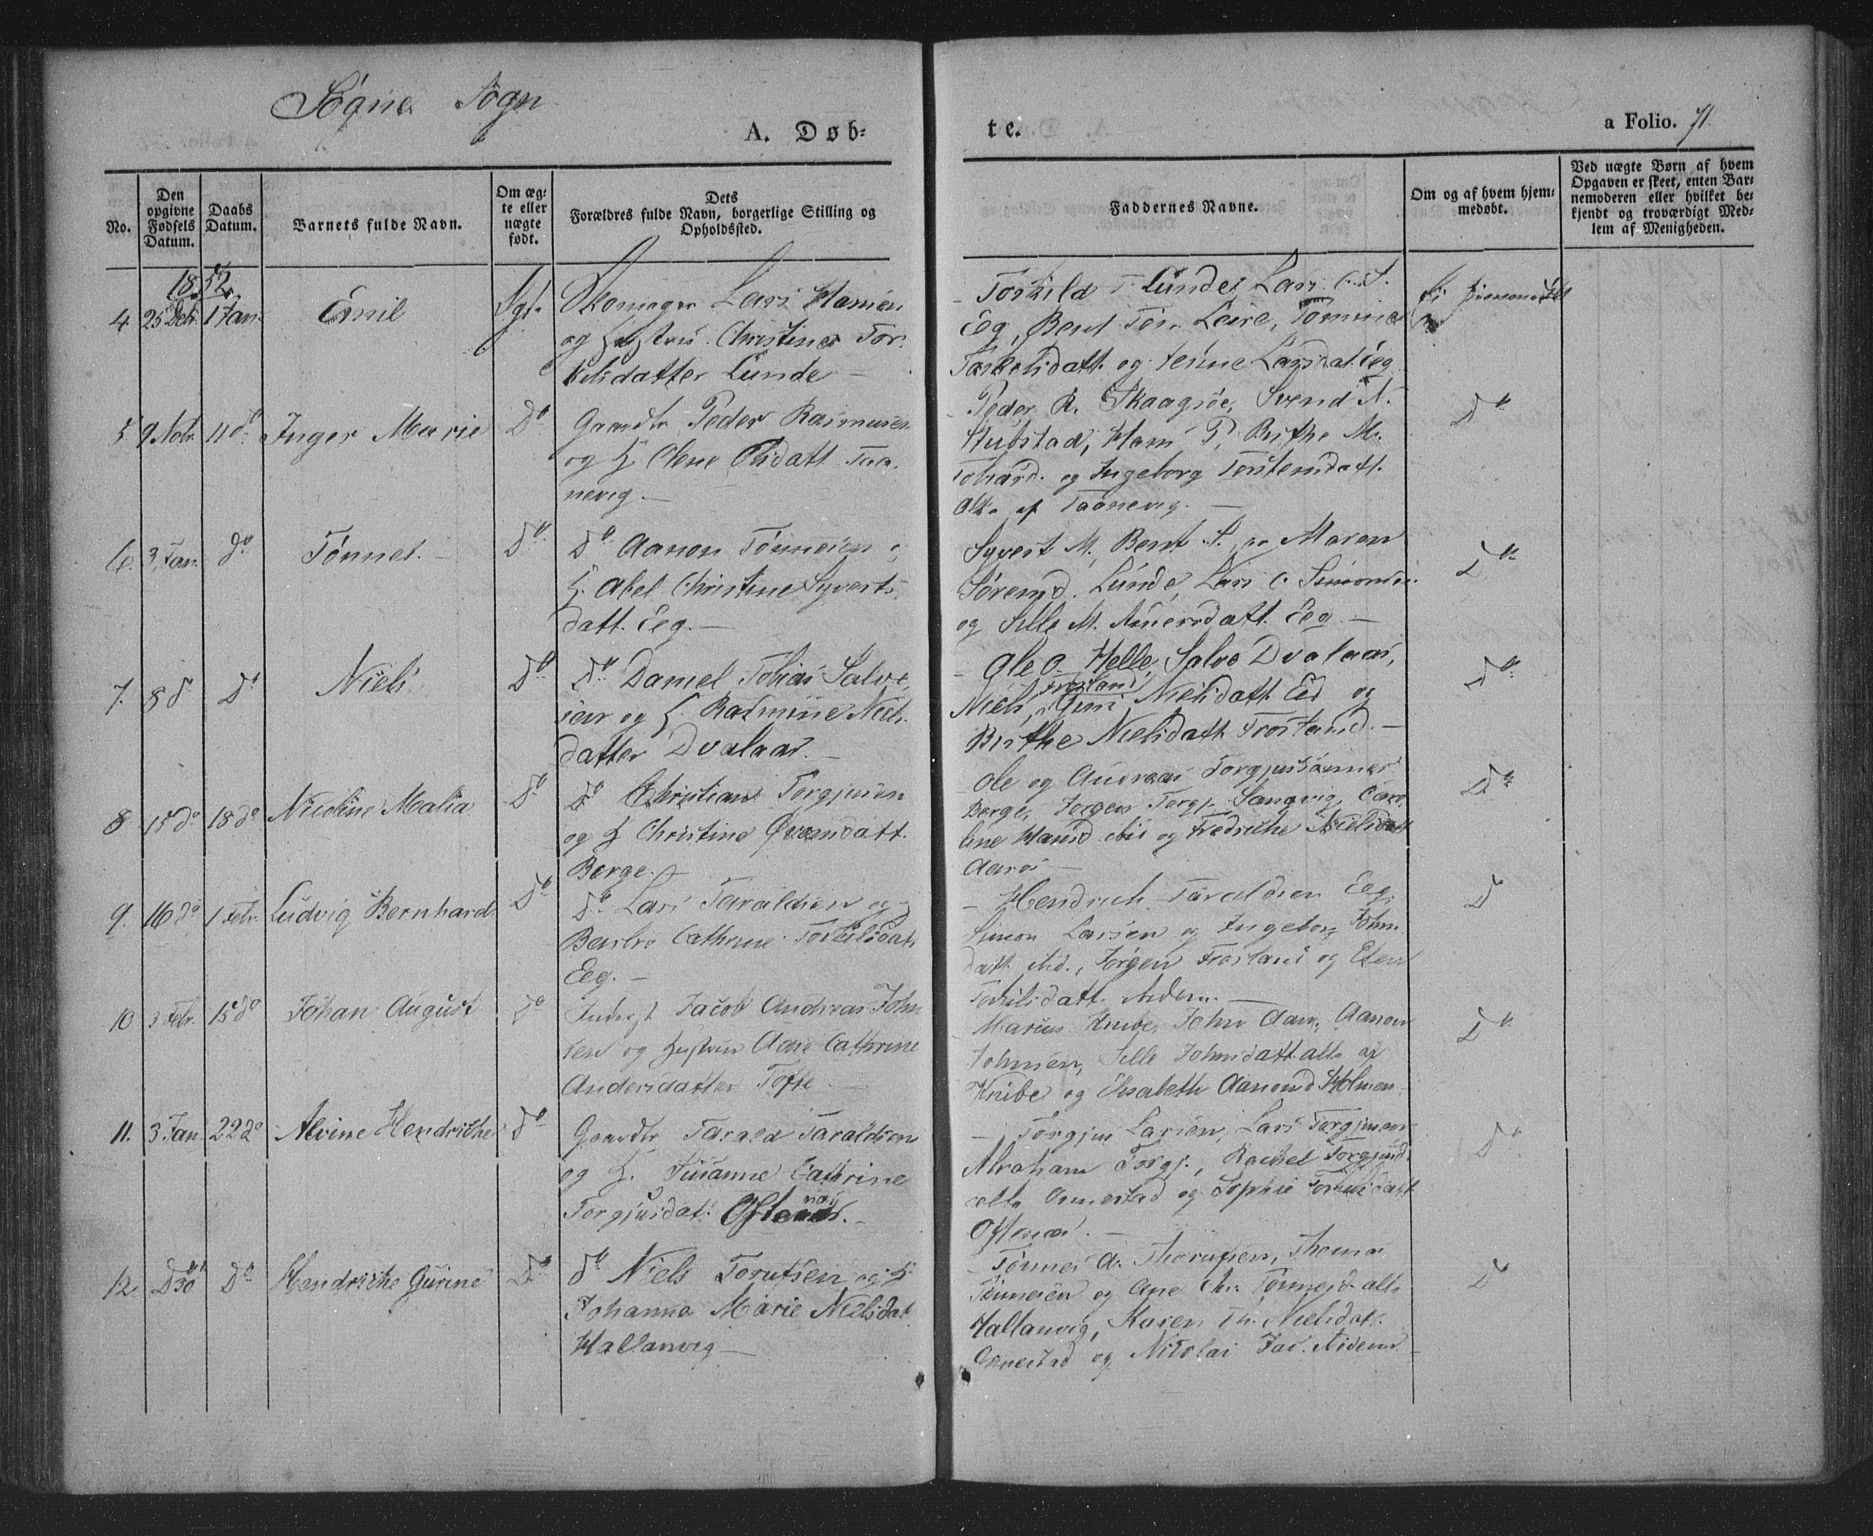 Søgne Sogn
A. Døb-
te.
a Folio. 71.
No.
Den opgivne Fødsels Datum.
Daabs Datum.
Barnets fulde Navn.
Om ægte eller uægte født.
Dets Forældres fulde Navn, borgerlige Stilling og Opholdssted.
Faddernes Navne.
Om og af hvem hjemmedøbt.
Ved uægte Børn af hvem Opgaven er skeet, enten Barnemoderen eller hvilket bekjendt og troværdigt Medlem af Menigheden.
1852
4 25 Dcbr 1 Jan. Emil Ægt. Skomager Lars Hansen
og Hustru Christine Tor-
kelsdatter Lunde —
Torkild T. Lunde, Lars O. S.
Eeg, Bernt Tør. Leire, Tomine
Torkelsdatt. og Larsdat Eeg
5 9 Nobr 11 do Inger Marie Do Gaardbr Peder Rasmusen
og H. Olene Olsdatt. Taa-
nevig. —
Peder R. Skaagsøe, Svend N.
Stubstad, Hans P., Birthe M.
og Ingeborg Torstensdatt.
alle af Taanevig. —
6. 3 Jan. do Tønnes. — Do Do Aanon Tønnesen og
H. Abel Christine Syverts-
datt. Eeg. —
Syvert M., Bent S., og Maren
Sørensd. Lunde, Lars O. Simonsen
og Sille M. Asmersdatt. Eeg —
Do
7. 8 do Do Niels Do Do Daniel Tobias Salve-
sen og H. Rasmine Niels-
datter Dvalaas. —
Ole O. Helle, Salve Dvalaas,
Niels Frøsland, Gini Nielsdatt. Eeg og
Birthe Nielsdatt. Frøsland. —
Do
8 15 do 18 do Nicoline Malia Do Do Christian Torgjusen
og H. Christine Øvensdatt.
Berge. —
Ole og Andreas Torgjussønner
Berge, Jørgen Torgj. Langvig, Caro-
line Hansd. ibid og Fredrikke Nielsdatt
Aaros —
Do
9. 16 do 1 Febr. Ludvig Bernhard Do Do Lars Taraldsen og
Barbro Cathrine Torkildsdatt
Eeg. —
Hendrich Taraldsen Eeg,
Simon Larsen og Ingeborg Johns-
datt. ibid., Jørgen Frøsland og Elen
Torkilsdatt. ibidem. —
Do
10 3 Febr. 15 do Johan August Do Inderst Jacob Andreas John-
sen og Hustru Ane Cathrine
Andersdatter Tofte —
Marius Knibe, John Aan., Aanon
Johnsen, Sille Johnsdatt alle af
Knibe og Elisabeth Aanonsd. Holmen
Do
11. 3 Jan 22 do Alvine Hendrikke Do Gaardbr Tarald Taraldsen
og H. Susanne Cathrine
Torgjusdat. Oftenæs. —
Torgjus Larsen, Lars Torgjusen
Abraham Torgj., Rachel Torgjusd.
alle Ormestad og Sophie Torkilsdatt
Oftenæs. —
Do
12. Do 30 Do Hendrikke Gurine Do Do Niels Torutsen og H.
Johanna Marie Nielsdat.
Høllanvig —
Tønnes A. Thorutsen, Thomas
Tønnesen og Ane Chr. Tønnesd. alle
Høllanvig, Karen Th. Nielsdat.
Ormestad og Nicolai Jac. ibidem
Do